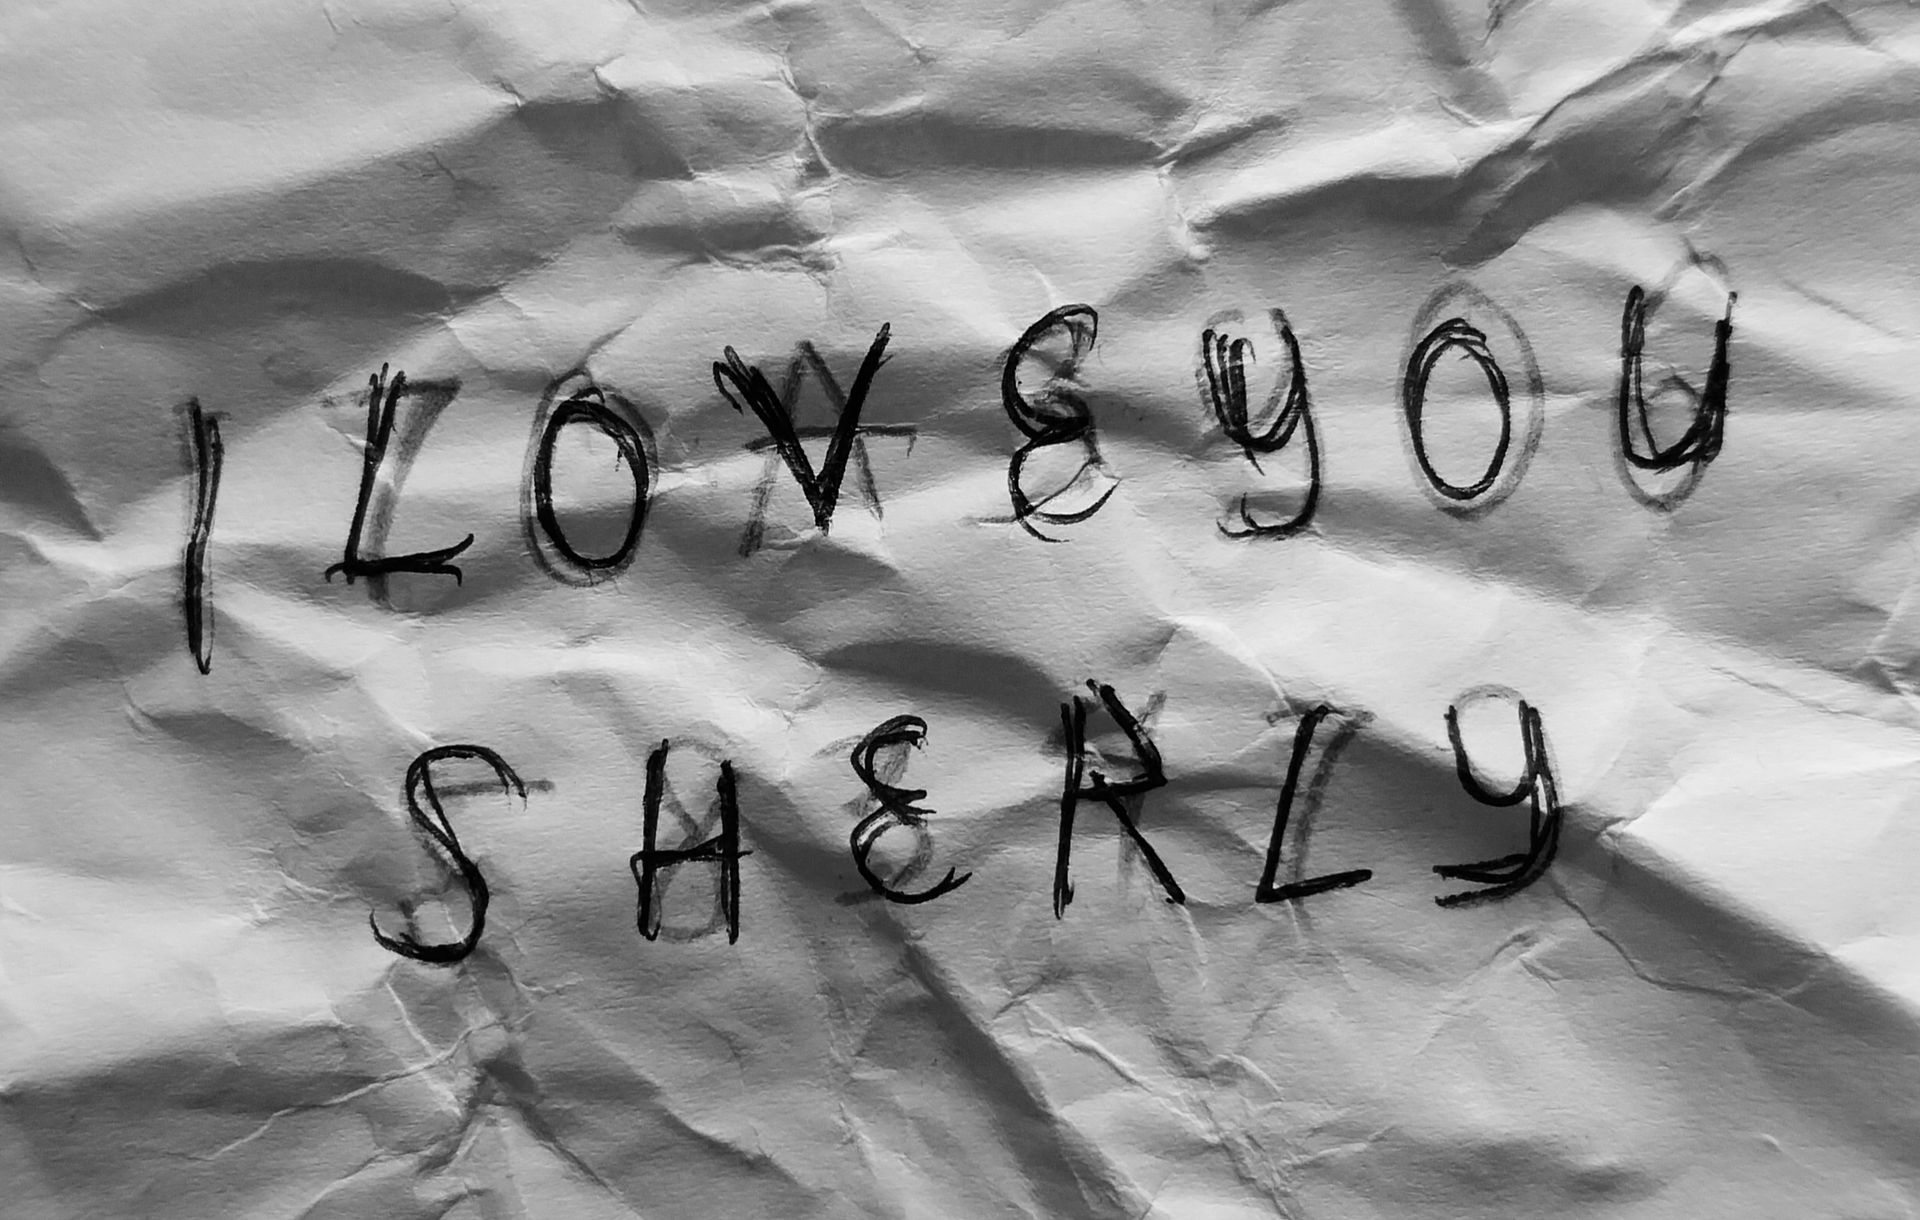 I LOVE YOU
SHERLY